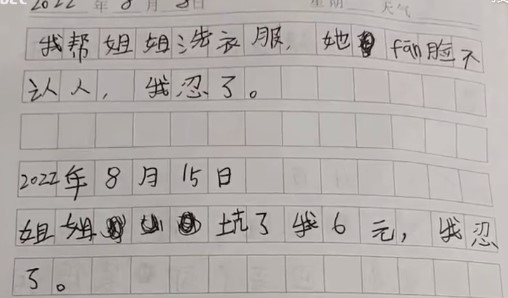 2022 年 8 月 8日 星期 天气
我帮姐姐洗衣服，她fān脸不
认人，我忍了。
2022年 8 月 15 日
姐姐坑了我6元，我忍
了。